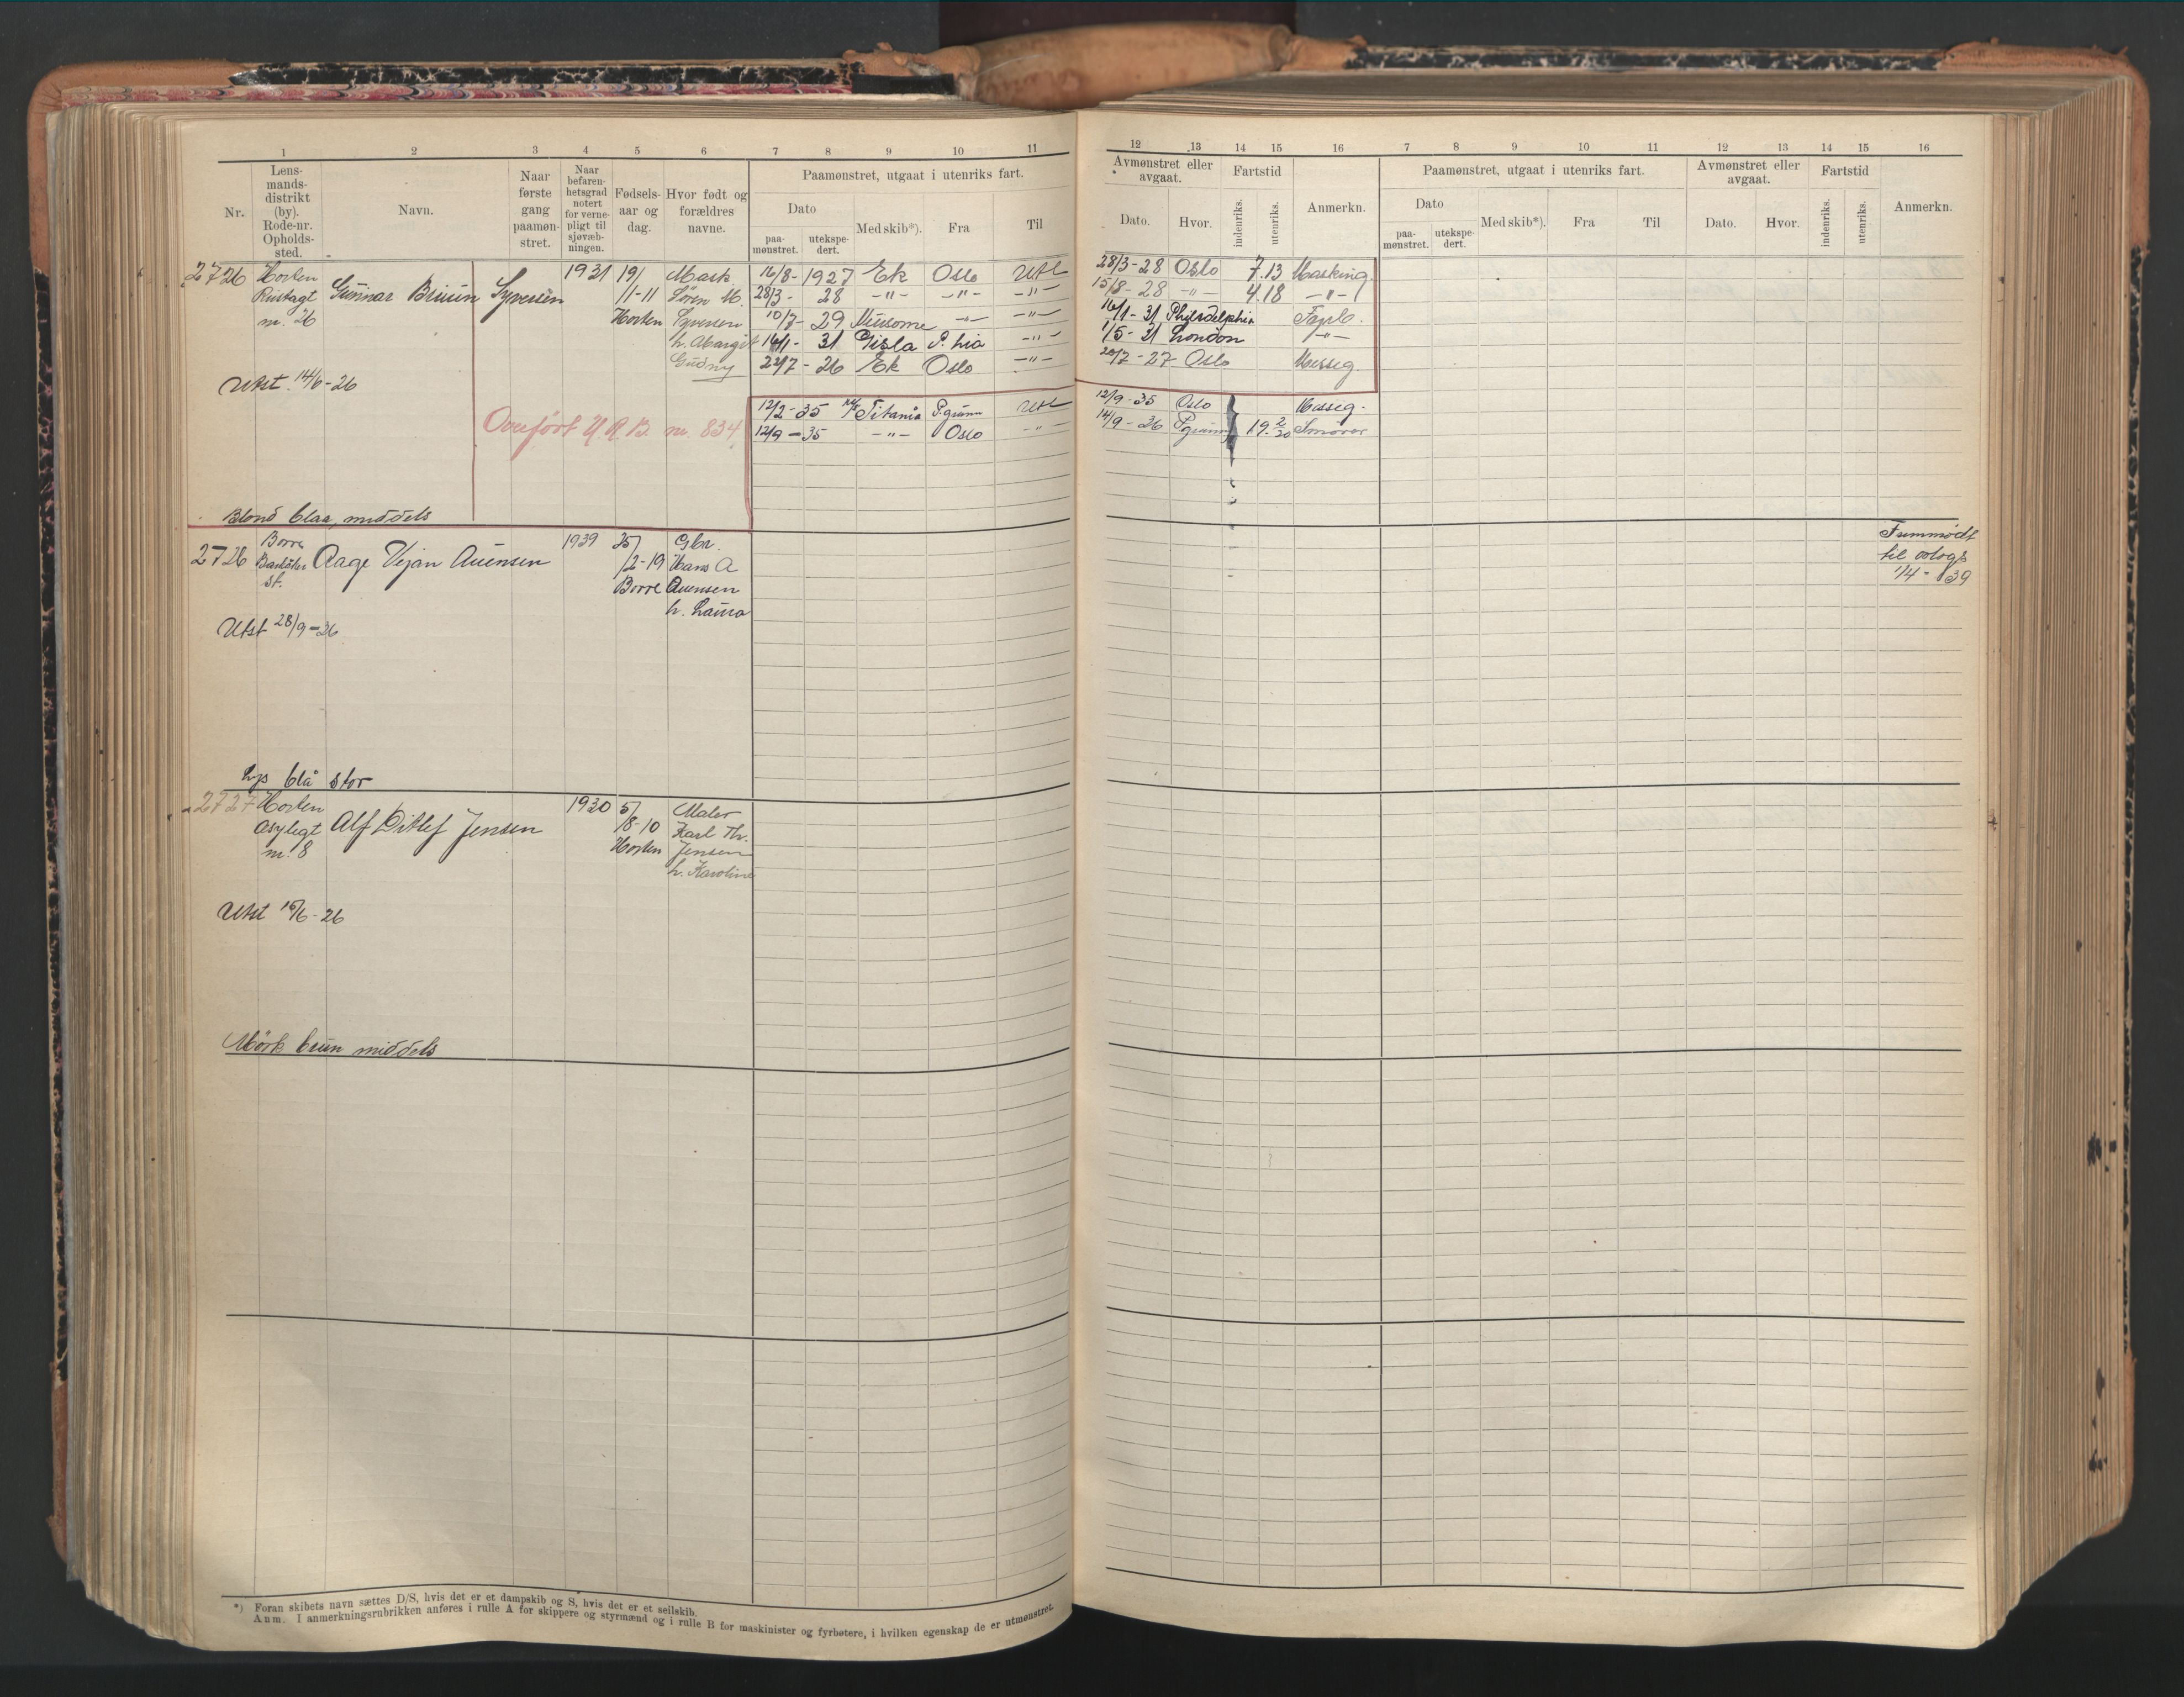 1 2 3 4 5 6 7 8 9 10 11
Nr.
Lens-
mands-
distrikt
(by).
Rode-nr.
Opholds-
sted.
Navn.
Naar
første
gang
paamøn-
stret.
Naar
befaren-
hetsgrad
notert
for verne-
pligt til
sjøvæb-
ningen.
Fødsels-
aar og
dag.
Hvor født og
forældres
navne.
Paamønstret, utgaat i utenriks fart.
Dato
paa-
mønstret.
utekspe-
dert.
Med skib*).
Fra
Til
2726 Horten Gunnar Bruun Syversen 1931 19/ Mask 16/8- 1927 Ek Oslo Utl
11-11 Søren M. 28/3- 28 -"- -"- -"-
nr. 26 Horten Syversen 10/7- 29 -"- -"-
h. Margit 31 Gisla P.hia -"-
Gudny 22/7- 26 Ek Oslo -"-
Utst. 14/6-26
Overført H.R.B. nr. 834
12/2-35 M/S Titania P.grunn Utl
12/9-35 -"- Oslo -"-
Blond blaa, middels
2726 Borre Aage Vejan Auensen 1939 25/ Gbr.
2-19 Hans A
st. Borre Auensen
h. Laura
Utst 28/9-36
Lys blå stor
2727 Horten Alf Ditlef Jensen 1930 5/ Maler
Asylegt 8-10 Karl Th.
nr. 8 Horten Jensen
h. Karoline
Utst 16/6-26
Mörk brun middels
*) Foran skibets navn sættes D/S, hvis det er et dampskib og S, hvis det er et seilskib.
Anm. I anmerkningsrubrikken anføres i rulle A for skippere og styrmænd og i rulle B for maskinister og fyrbøtere, i hvilken egenskap de er utmønstret.
12 13 14 15 16 7 8 9 10 11 12 13 14 15 16
Avmønstret eller
avgaat.
Dato.
Hvor.
Fartstid
indenriks.
utenriks.
Anmerkn.
Paamønstret, utgaat i utenriks fart.
Dato
paa-
mønstret.
utekspe-
dert.
Med skib*).
Fra
Til
Avmønstret eller
avgaat.
Dato.
Hvor.
Fartstid
indenriks.
utenriks.
Anmerkn.
28/3-28 Oslo 7.13 Masking.
15/8-28 -"- 4.18 -"-
16/1-31 Philadelphia
1/5-31 London -"-
-27 Oslo Messeg.
12/9-35 Oslo Messeg.
14/9-36 P.grunn 19. 2/20 Smører
Fremmødt
til
1/4-39